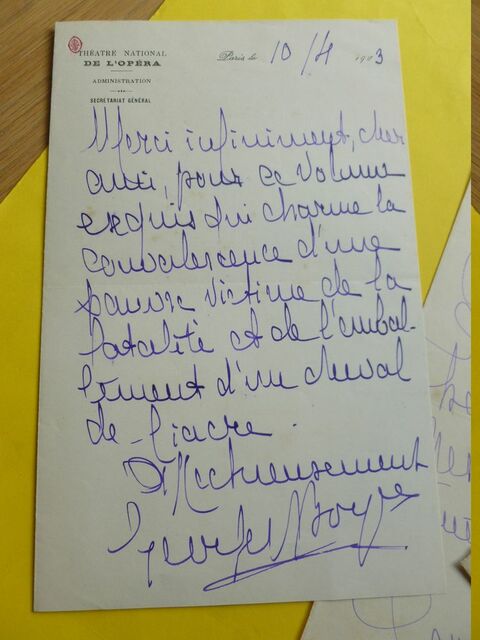 THÉATRE NATIONAL
DE L'OPÉRA
ADMINISTRATION
SECRÉTARIAT GÉNÉRAL
Paris le 10/4 1903
Merci infiniment, cher
ami, pour ce volume
exquis qui charme la
convalescence d'une
pauvre victime de la
fatalité et de l'embal-
lement d'un cheval
de fiacre.
Affectueusement
Georges Boyer